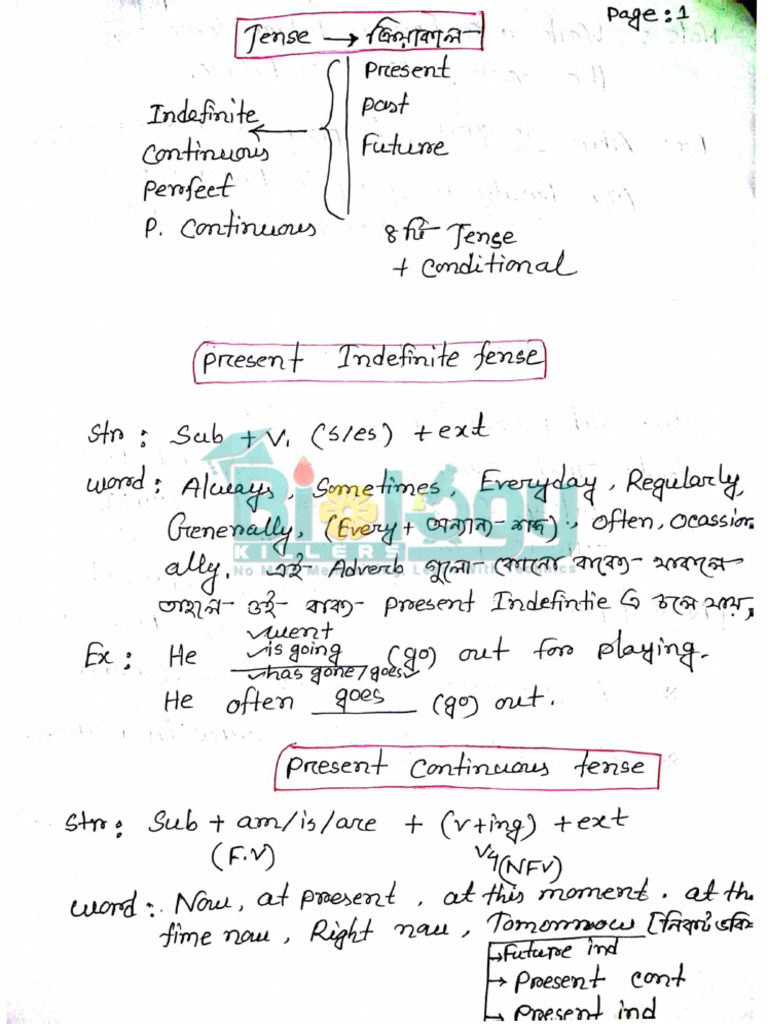 Page: 1
Tense → ক্রিয়াকাল
Present
Past
Future
Indefinite
Continuous
Perfect
P. Continuous
৪টি Tense
+ Conditional
Present Indefinite tense
Str: Sub + V₁ (s/es) + ext
Word: Always, Sometimes, Everyday, Regularly,
Generally, (Every + অন্যান্য শব্দ), often, ocassion
ally. এই Adverb গুলো কোনো বাক্যে থাকলে
তাহলে ওই বাক্য Present Indefintie এ চলে যায়,
✓went
Ex: He ✓is going (go) out for playing.
✓has gone/goes✓
He often goes (go) out.
Present Continuous tense
Str: Sub + am/is/are + (v+ing) + ext
(F.V) V4 (NFV)
Word: Now, at present, at this moment. at th
time now, Right now, Tomorrow [নিকট ভবি
→ Future ind
→ Present cont
→ Present ind
BiOlOgy
KILLERS